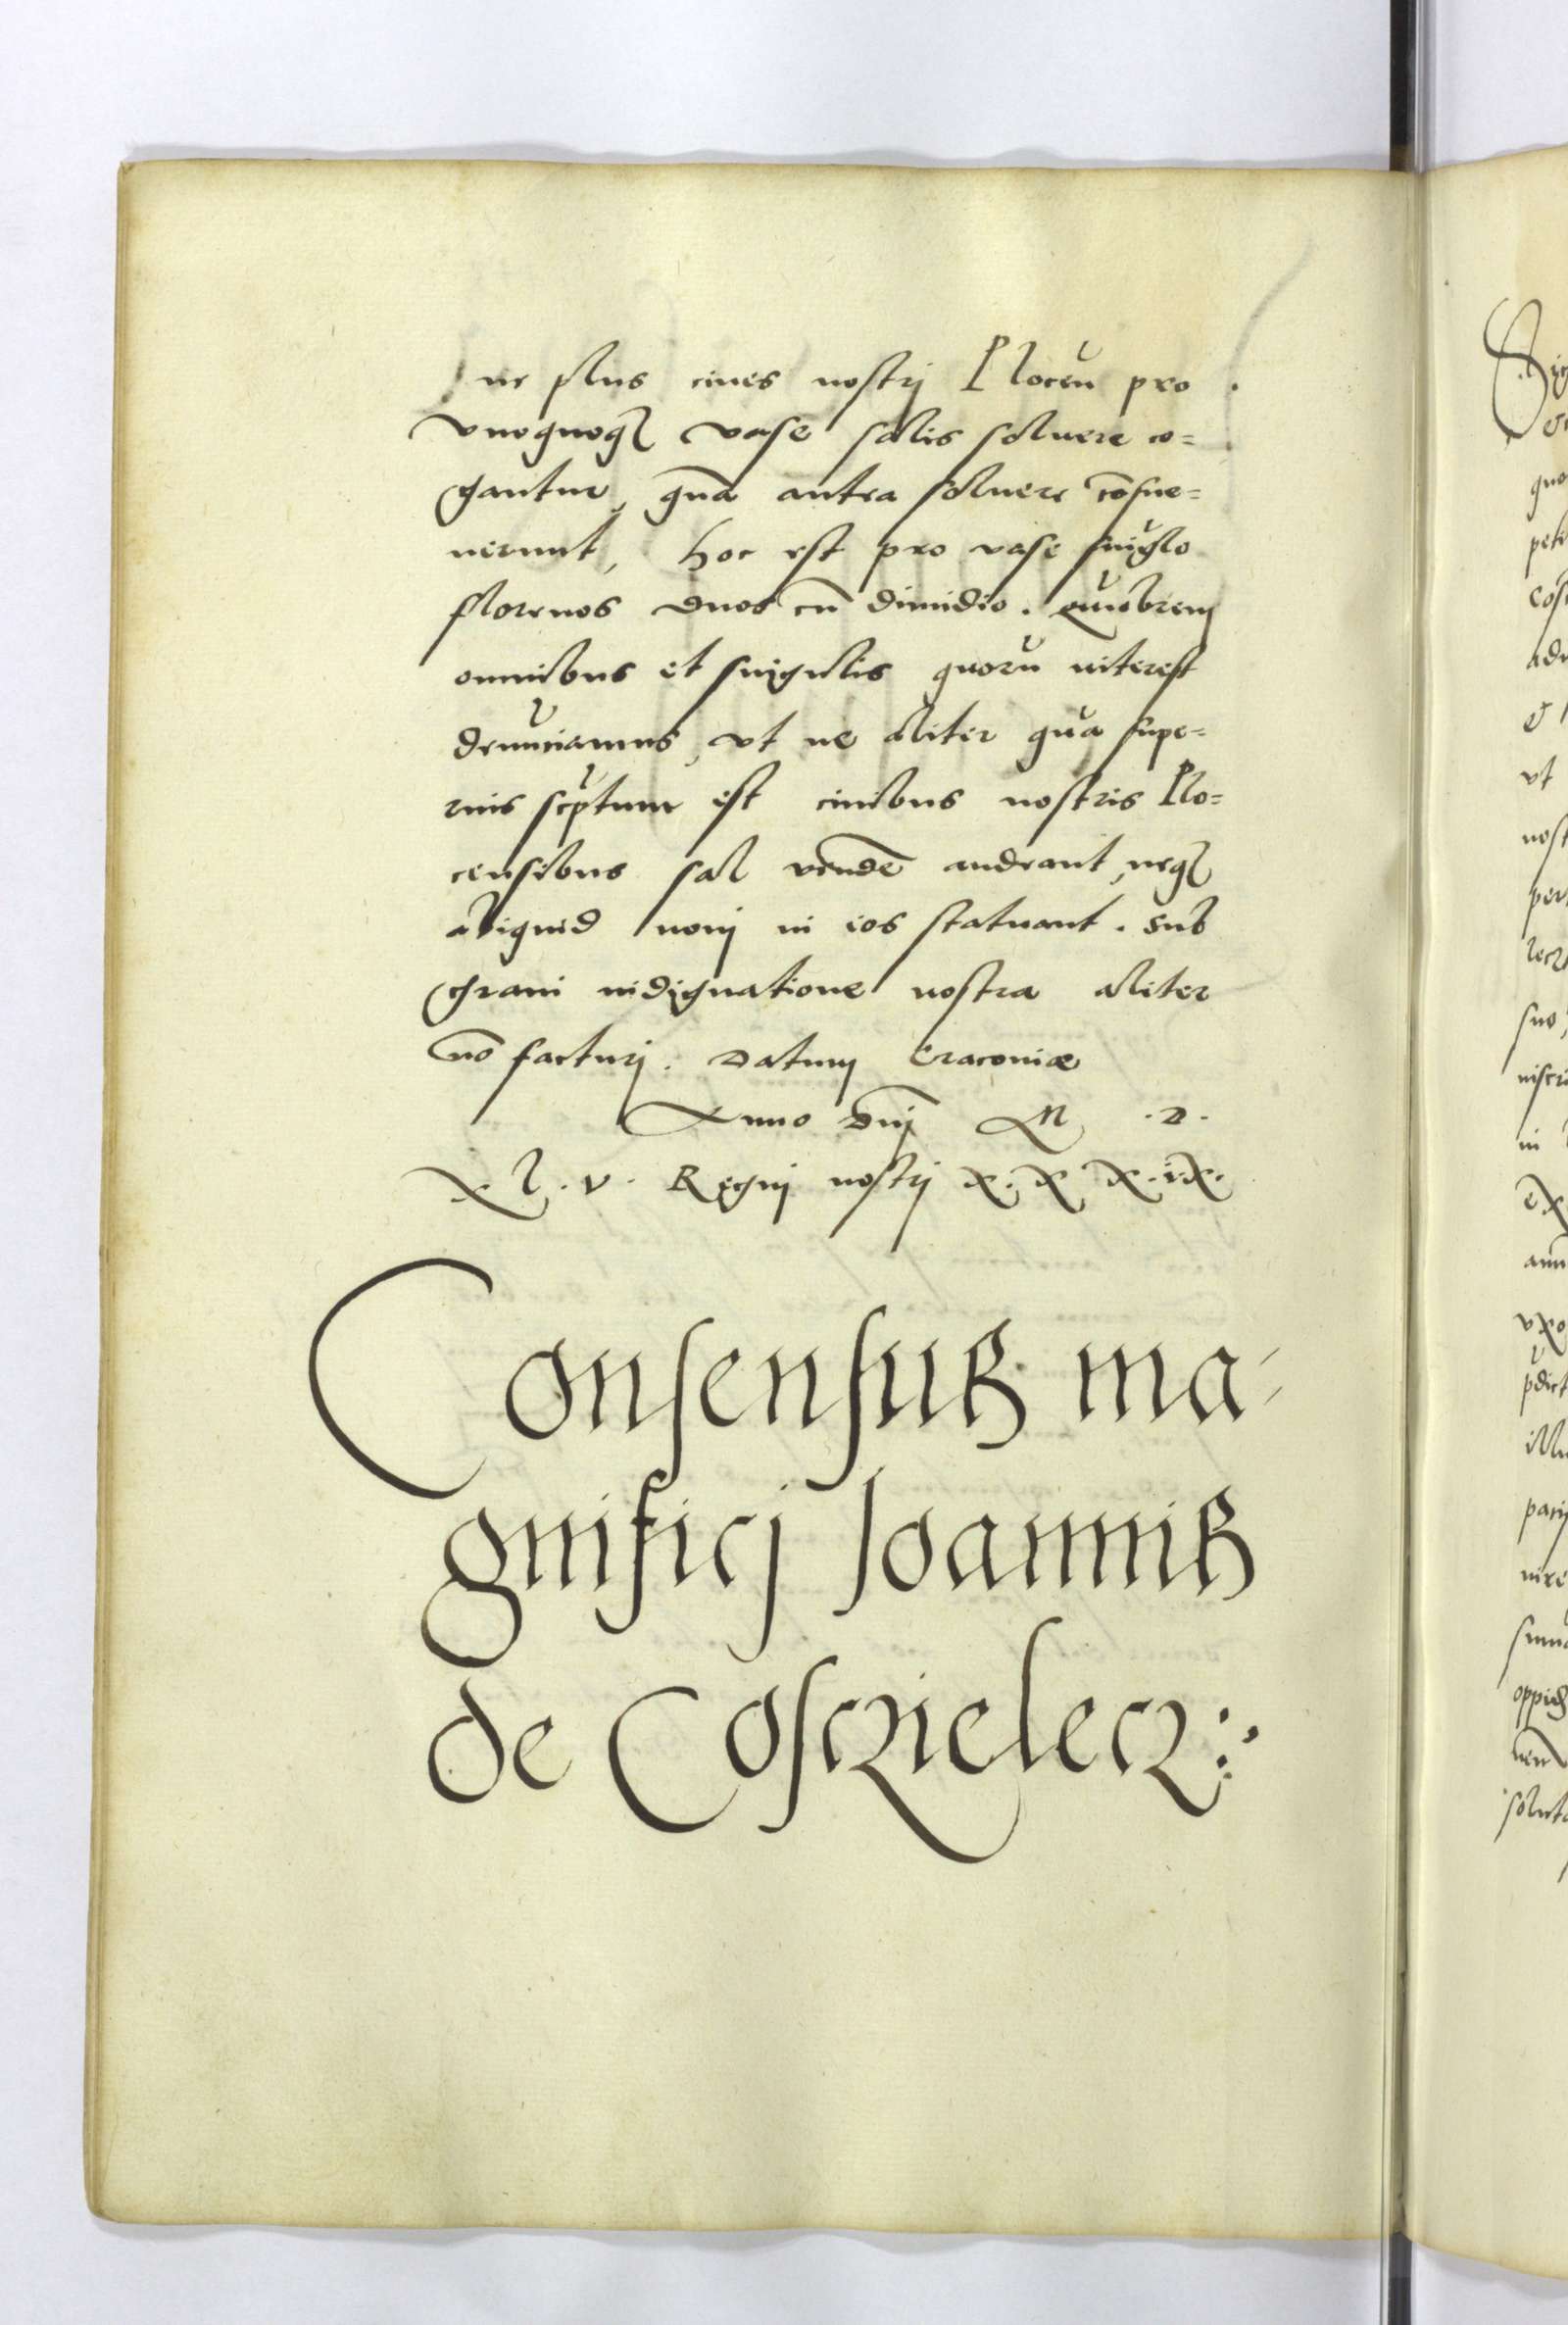 ne plus ciues nostrj Ploceñ pro
vnoquoq₃ vase salis soluere co=
gantur, quā antea soluere cōsue=
uerunt, hoc est pro vase singlo
florenos duos cū dimidio. Quāobrem
omnibus et singulis quorū interest
denūciamus, vt ne aliter quā supe=
rius scptum est ciuibus nostris Plo=
censibus sal vendē audeant, neq₃
aliquid nouj in eos statuant. Sub
graui indignatione nostra aliter
nō facturj. Datum Cracouiæ
Anno Dnj M .D.
XL.V. Regnj nostrj X.X X.IX.
Consensus ma-
gnificj Joannis
de Cosczielecz: